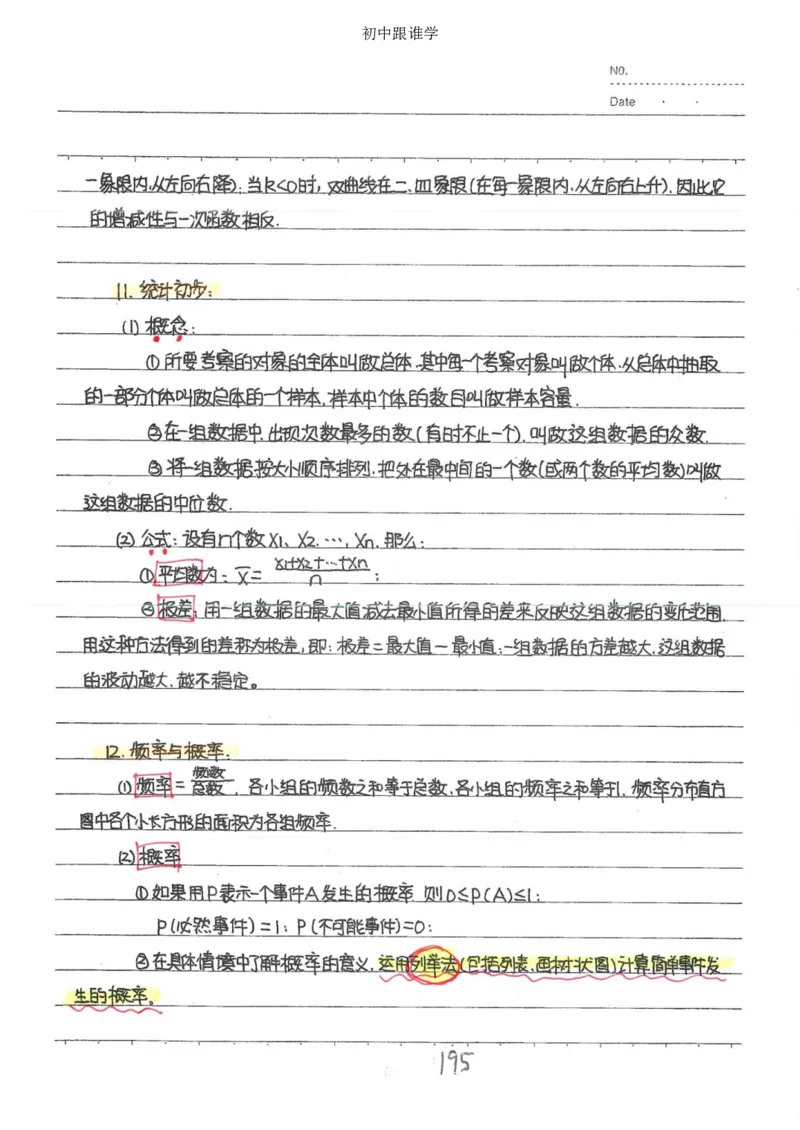 初中跟谁学
NO.
Date
一象限内,从左向右降);当k<0时,双曲线在二、四象限(在每一象限内,从左向右上升).因此,它
的增减性与一次函数相反.
11. 统计初步:
(1) 概念:
①所要考察的对象的全体叫做总体,其中每一个考察对象叫做个体.从总体中抽取
的一部分个体叫做总体的一个样本,样本中个体的数目叫做样本容量.
②在一组数据中,出现次数最多的数(有时不止一个),叫做这组数据的众数.
③将一组数据按大小顺序排列,把处在最中间的一个数(或两个数的平均数)叫做
这组数据的中位数.
(2) 公式:设有n个数x1、x2,…,xn,那么:
①平均数为: x̄ = (x1+x2+…+xn)/n ;
②极差:用一组数据的最大值减去最小值所得的差来反映这组数据的变化范围,
用这种方法得到的差称为极差,即:极差=最大值-最小值;一组数据的方差越大,这组数据
的波动越大,越不稳定。
12. 频率与概率.
(1) 频率=频数/总数,各小组的频数之和等于总数,各小组的频率之和等于1,频率分布直方
图中各个小长方形的面积为各组频率.
(2) 概率
①如果用P表示一个事件A发生的概率,则0≤P(A)≤1;
P(必然事件)=1;P(不可能事件)=0;
②在具体情境中了解概率的意义,运用列举法(包括列表、画树状图)计算简单事件发
生的概率。
195